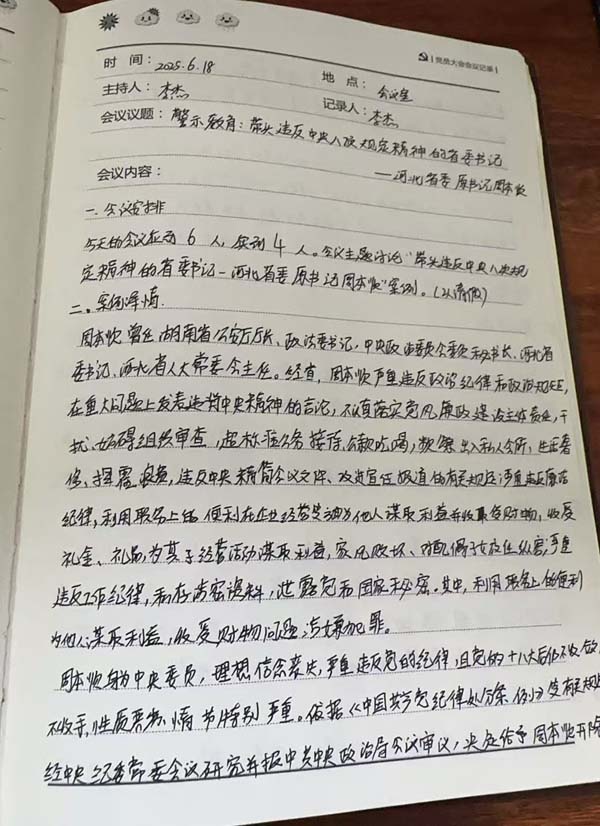 党员大会会议记录
时 间：2025.6.18 地 点：会议室
主持人：李杰 记录人：李杰
会议议题：警示教育：带头违反中央八项规定精神的省委书记
——河北省委原书记周本顺
会议内容：
一、会议安排
今天的会议应到6人，实到4人。会议主题讨论“带头违反中央八项规
定精神的省委书记—河北省委原书记周本顺”案例。（2人请假）
二、案例详情
周本顺曾任湖南省公安厅厅长、政法委书记，中央政法委员会委员秘书长、河北省
委书记、河北省人大常委会主任。经查，周本顺严重违反政治纪律和政治规矩，
在重大问题上发表违背中央精神的言论，不认真落实党风廉政建设主体责任，干
扰、妨碍组织审查，超标准公务接待公款吃喝，频繁出入私人会所，生活奢
侈、挥霍浪费，违反中央精简会议文件、改进宣传报道的有关规定；严重违反廉洁
纪律，利用职务上的便利在企业经营等方面为他人谋取利益并收受财物，收受
礼金、礼品为其子经营活动谋取利益，家风败坏、对配偶子女放任纵容；严重
违反工作纪律，私存涉密资料，泄露党和国家秘密。其中，利用职务上的便利
为他人谋取利益，收受财物问题涉嫌犯罪。
周本顺身为中央委员，理想信念丧失，严重违反党的纪律，且党的十八大后仍不收敛
不收手，性质恶劣、情节特别严重。依据《中国共产党纪律处分条例》等有关规定
经中央纪委常委会议研究并报中共中央政治局会议审议，决定给予周本顺开除